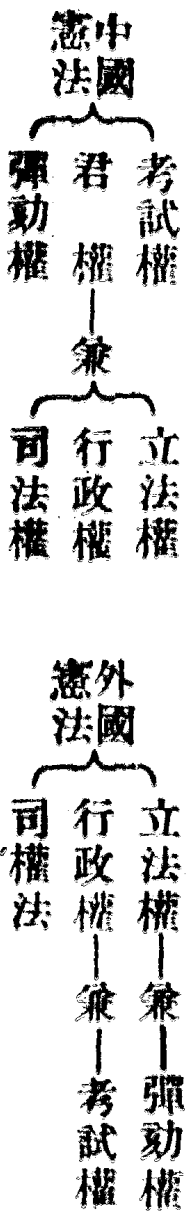 中國
憲法
考試權
君權
兼
立法權
行政權
司法權
彈劾權
外國
憲法
立法權
兼
彈劾權
行政權
兼
考試權
司權法